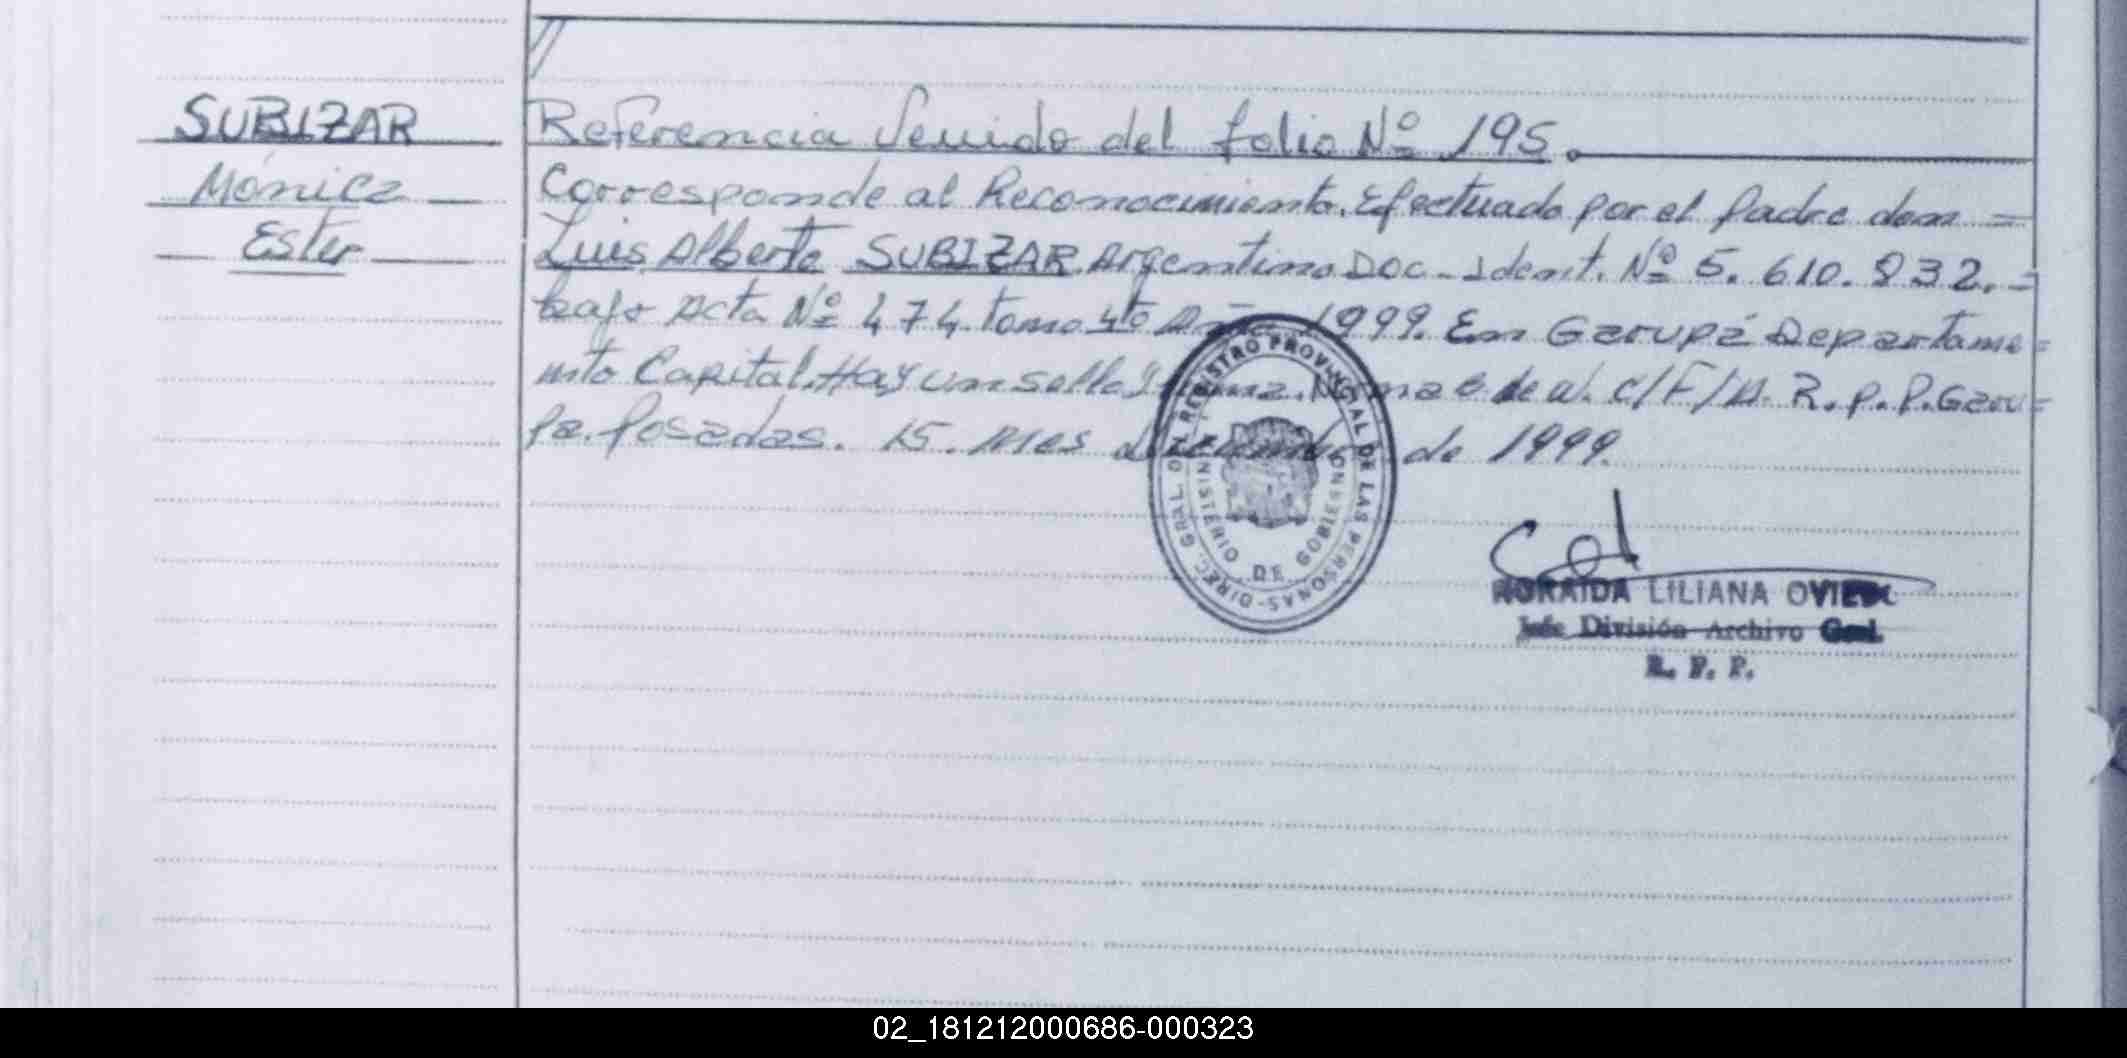 SUBIZAR
Mónica
Ester
Referencia Venido del folio Nº 195.
Corresponde al Reconocimiento. Efectuado por el Padre don =
Luis Alberto SUBIZAR Argentino Doc. Ident. Nº 5.610.832.=
bajo Acta Nº 474 tomo 4to Año 1999. En Garupá Departame=
nto Capital. Hay un sello de C/F/A. R.P.P. Garu=
pa. Posadas. 15. Mes diciembre de 1999.
DIREC. GRAL. DEL REGISTRO PROVINCIAL DE LAS PERSONAS-
MINISTERIO DE GOBIERNO
LILIANA OVIEDO
Jefe División Archivo Gral.
R. P. P.
02_181212000686-000323